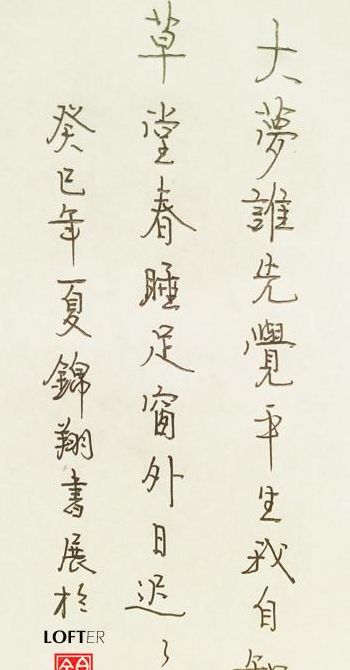 大夢誰先覺平生我自
草堂春睡足窗外日遲
癸巳年夏錦翔書展於
LOFTER